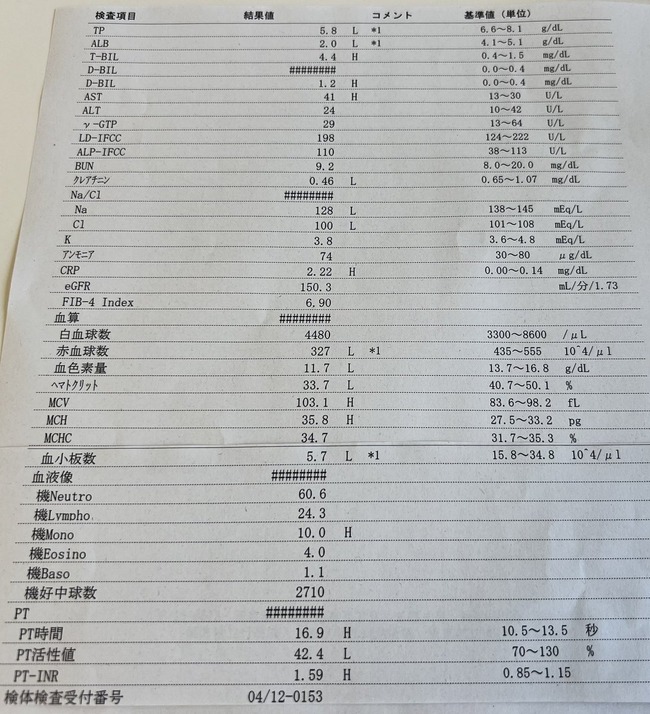 検査項目 結果値 コメント 基準値（単位）
TP 5.8 L *1 6.6～8.1 g/dL
ALB 2.0 L *1 4.1～5.1 g/dL
T-BIL 4.4 H 0.4～1.5 mg/dL
D-BIL ######## 0.0～0.4 mg/dL
D-BIL 1.2 H 0.0～0.4 mg/dL
AST 41 H 13～30 U/L
ALT 24 10～42 U/L
γ-GTP 29 13～64 U/L
LD-IFCC 198 124～222 U/L
ALP-IFCC 110 38～113 U/L
BUN 9.2 8.0～20.0 mg/dL
ｸﾚｱﾁﾆﾝ 0.46 L 0.65～1.07 mg/dL
Na/Cl ########
Na 128 L 138～145 mEq/L
Cl 100 L 101～108 mEq/L
K 3.8 3.6～4.8 mEq/L
ｱﾝﾓﾆｱ 74 30～80 μg/dL
CRP 2.22 H 0.00～0.14 mg/dL
eGFR 150.3 mL/分/1.73
FIB-4 Index 6.90
血算 ########
白血球数 4480 3300～8600 /μL
赤血球数 327 L *1 435～555 10^4/μl
血色素量 11.7 L 13.7～16.8 g/dL
ﾍﾏﾄｸﾘｯﾄ 33.7 L 40.7～50.1 %
MCV 103.1 H 83.6～98.2 fL
MCH 35.8 H 27.5～33.2 pg
MCHC 34.7 31.7～35.3 %
血小板数 5.7 L *1 15.8～34.8 10^4/μl
血液像 ########
機Neutro 60.6
機Lympho 24.3
機Mono 10.0 H
機Eosino 4.0
機Baso 1.1
機好中球数 2710
PT ########
PT時間 16.9 H 10.5～13.5 秒
PT活性値 42.4 L 70～130 %
PT-INR 1.59 H 0.85～1.15
検体検査受付番号 04/12-0153